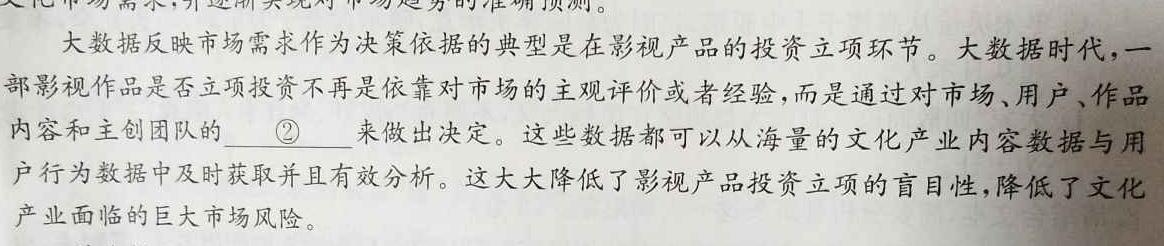 文化市场需求,并逐渐实现对市场趋势的准确预测。
大数据反映市场需求作为决策依据的典型是在影视产品的投资立项环节。大数据时代,一
部影视作品是否立项投资不再是依靠对市场的主观评价或者经验,而是通过对市场、用户、作品
内容和主创团队的 ② 来做出决定。这些数据都可以从海量的文化产业内容数据与用
户行为数据中及时获取并且有效分析。这大大降低了影视产品投资立项的盲目性,降低了文化
产业面临的巨大市场风险。